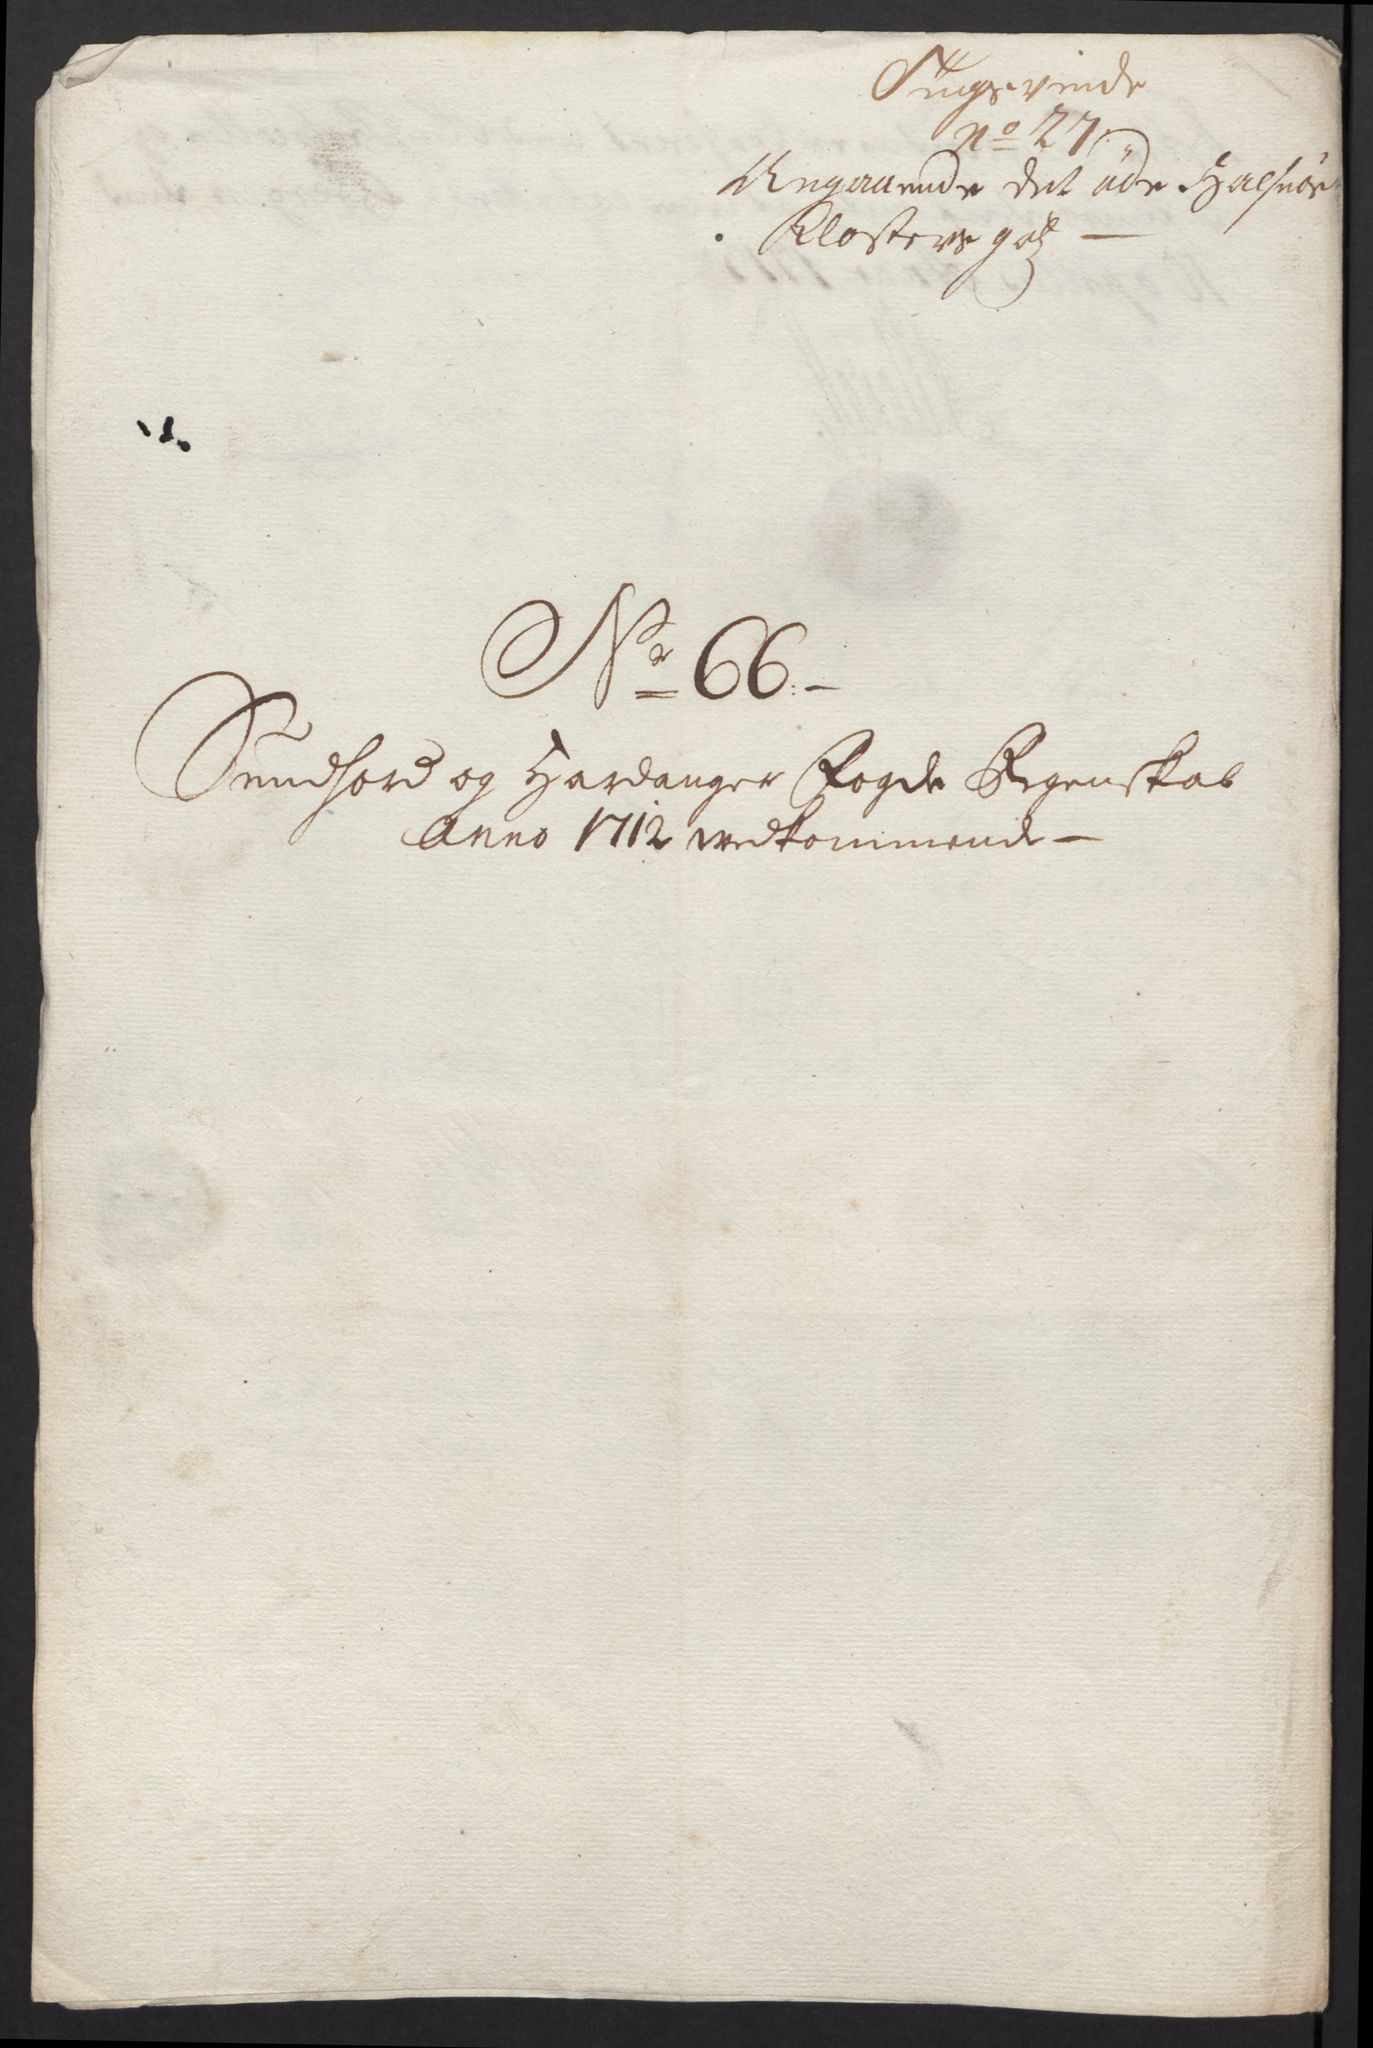 Tingsvinde
no 27.
Angaaende det øde Halsnøe
Klosters gotz —
No 66. —
Sundhord og Hardanger Fogde Regenskab
Anno 1712 vedkommende —